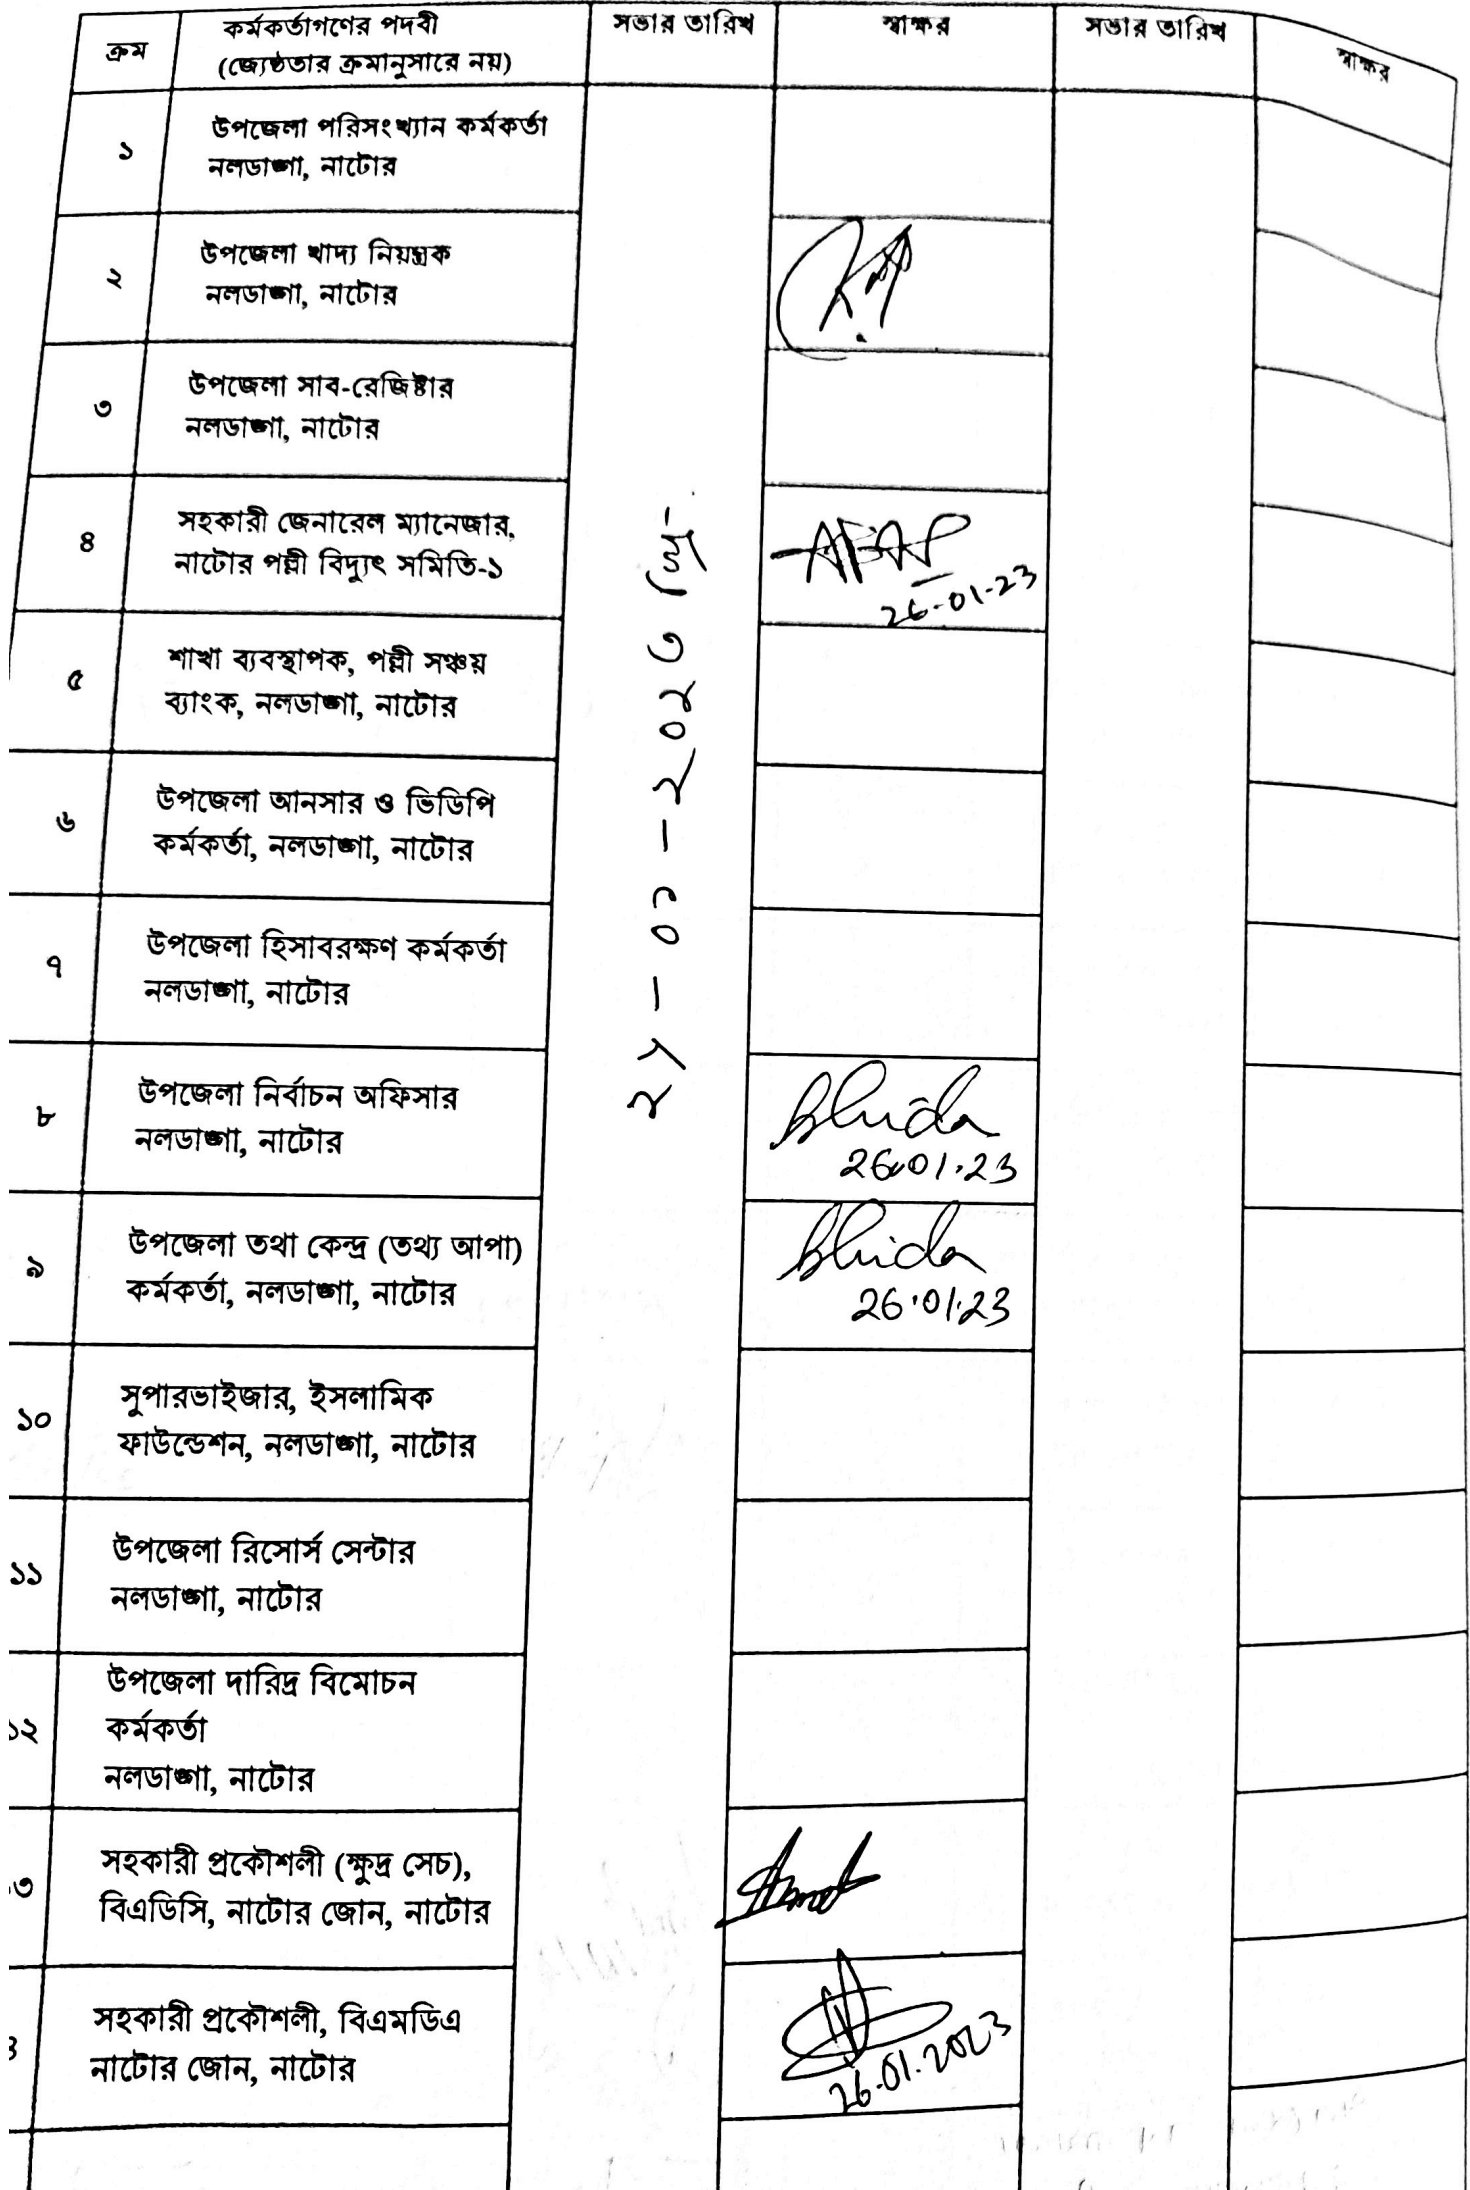 ক্রম
কর্মকর্তাগণের পদবী
(জ্যেষ্ঠতার ক্রমানুসারে নয়)
সভার তারিখ
স্বাক্ষর
সভার তারিখ
স্বাক্ষর
১
উপজেলা পরিসংখ্যান কর্মকর্তা
নলডাঙ্গা, নাটোর
২
উপজেলা খাদ্য নিয়ন্ত্রক
নলডাঙ্গা, নাটোর
৩
উপজেলা সাব-রেজিষ্টার
নলডাঙ্গা, নাটোর
৪
সহকারী জেনারেল ম্যানেজার,
নাটোর পল্লী বিদ্যুৎ সমিতি-১
26-01-23
৫
শাখা ব্যবস্থাপক, পল্লী সঞ্চয়
ব্যাংক, নলডাঙ্গা, নাটোর
৬
উপজেলা আনসার ও ভিডিপি
কর্মকর্তা, নলডাঙ্গা, নাটোর
৭
উপজেলা হিসাবরক্ষণ কর্মকর্তা
নলডাঙ্গা, নাটোর
২৬-০১-২০২৩ খ্রি.
৮
উপজেলা নির্বাচন অফিসার
নলডাঙ্গা, নাটোর
26.01.23
৯
উপজেলা তথা কেন্দ্র (তথ্য আপা)
কর্মকর্তা, নলডাঙ্গা, নাটোর
26.01.23
১০
সুপারভাইজার, ইসলামিক
ফাউন্ডেশন, নলডাঙ্গা, নাটোর
১১
উপজেলা রিসোর্স সেন্টার
নলডাঙ্গা, নাটোর
১২
উপজেলা দারিদ্র বিমোচন
কর্মকর্তা
নলডাঙ্গা, নাটোর
৩
সহকারী প্রকৌশলী (ক্ষুদ্র সেচ),
বিএডিসি, নাটোর জোন, নাটোর
৪
সহকারী প্রকৌশলী, বিএমডিএ
নাটোর জোন, নাটোর
26.01.2023